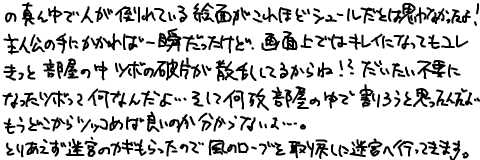 の真ん中で人が倒れている絵面がこれほどシュールだとは思わなかったよ！
主人公の手にかかれば一瞬だったけど、画面上ではキレイになってもコレ
きっと部屋の中ツボの破片が散乱してるからね！？だいたい不要に
なったツボって何なんだよ…そして何故部屋の中で割ろうと思ったんだよ…
もうどこからツッコめば良いのか分からないよ…。
とりあえず迷宮のカギもらったので風のローブを取り戻しに迷宮へ行ってきます。